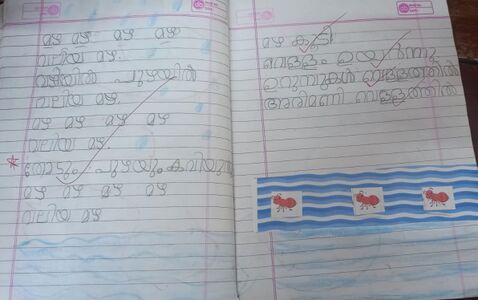 മഴ മഴ മഴ മഴ
വലിയ മഴ.
വഴിയിൽ പുഴയിൽ
വലിയ മഴ.
മഴ മഴ മഴ മഴ
വലിയ മഴ
തോടും പുഴയും കവിയുന്ന
മഴ മഴ മഴ മഴ
വലിയ മഴ
മഴ കൂടി
വെള്ളം ഉയർന്നു
ഉറുമ്പുകൾ വെള്ളത്തിൽ
അരിമണി വെള്ളത്തിൽ